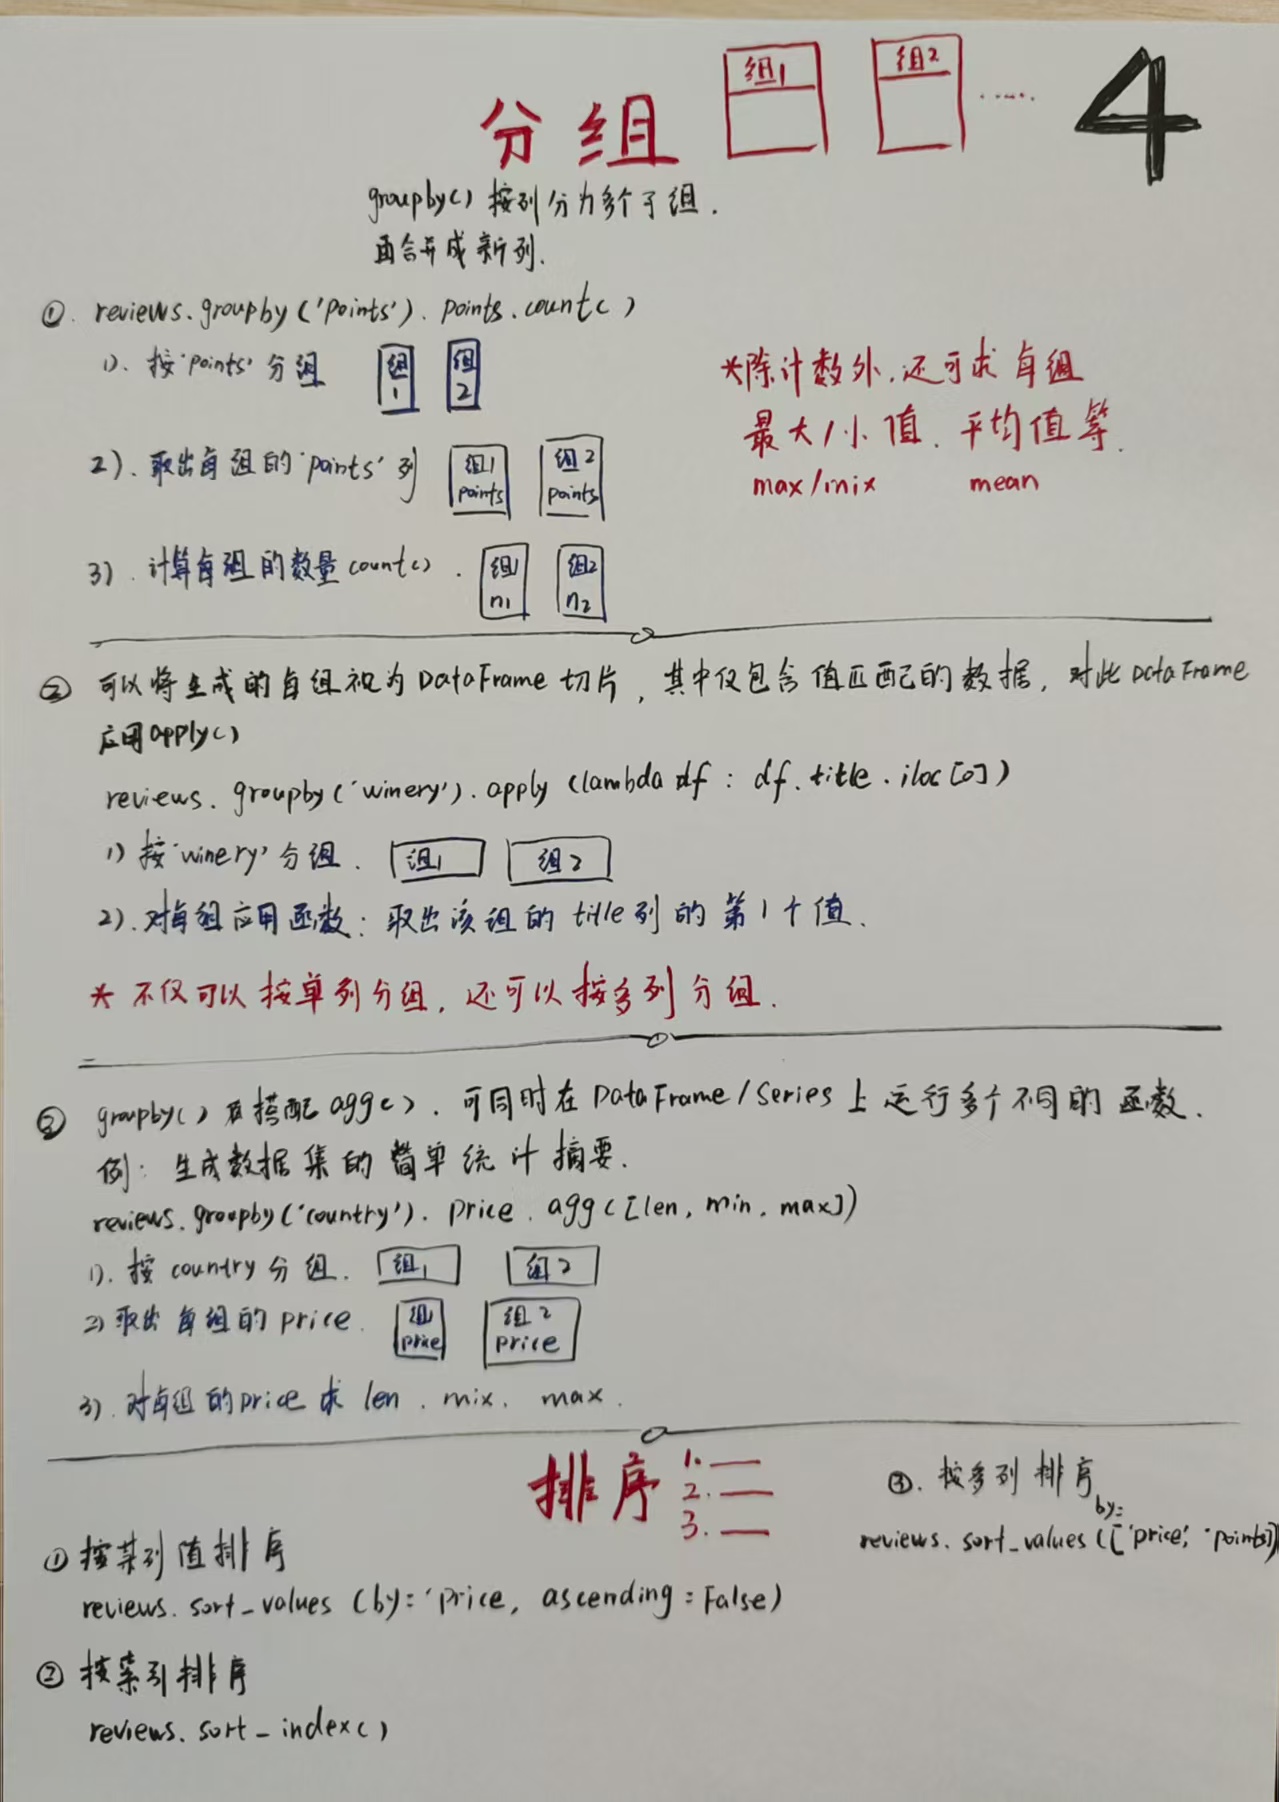 分组 组1 组2 ...... 4
groupby() 按列分为多个子组.
再合并成新列.
①. reviews.groupby('points'). points.count()
1). 按'points'分组 组1 组2
*除计数外,还可求每组
最大/小值.平均值等.
max/mix mean
2).取出每组的'points'列 组1 points 组2 points
3).计算每组的数量count(). 组1 n1 组2 n2
② 可以将生成的每组视为DataFrame切片,其中仅包含值匹配的数据,对此DataFrame
应用apply()
reviews. groupby('winery'). apply (lambda df : df.title.iloc[0])
1) 按'winery'分组. 组1 组2
2).对每组应用函数:取出该组的title列的第1个值.
* 不仅可以按单列分组,还可以按多列分组.
② groupby() 搭配agg(),可同时在DataFrame/Series上运行多个不同的函数.
例: 生成数据集的简单统计摘要.
reviews.groupby('country'). price. agg([len, min, max])
1). 按country分组. 组1 组2
2) 取出每组的price. 组1 price 组2 price
3).对每组的price求 len. mix. max.
排序 1. 2. 3.
① 按某列值排序
reviews. sort_values (by='price, ascending=False)
② 按索引排序
reviews. sort_index()
③. 按多列排序
by=
reviews. sort_values (['price', 'points])